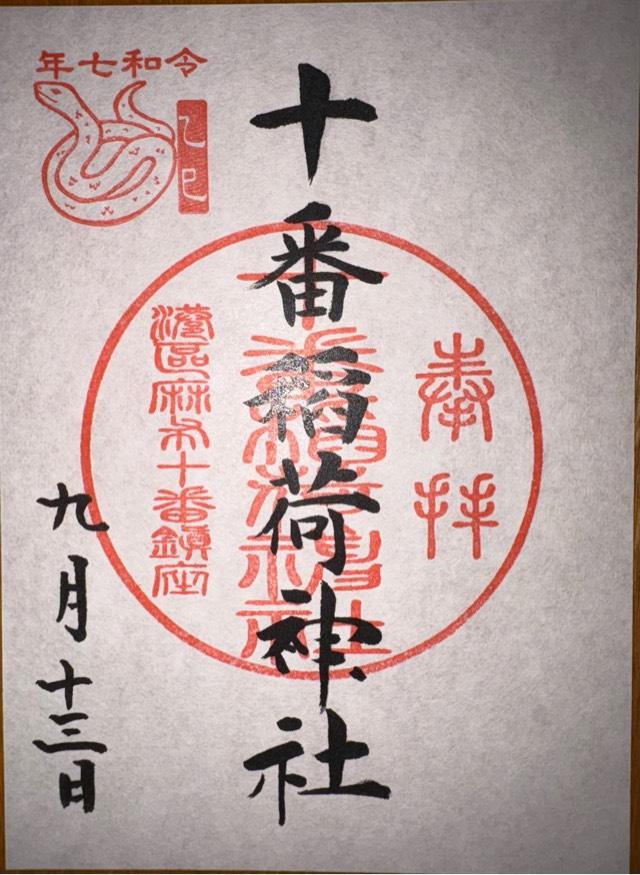 令和七年
乙巳
奉拝
十番稲荷神社
港區麻布十番鎮座
九月十三日